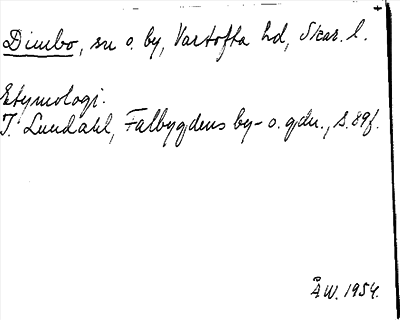 Dimbo, sn o. by, Vartofta hd, Skar. l.
Etymologi.
I. Lundahl, Falbygdens by- o. gdn., s. 89f.
ÅW. 1954.